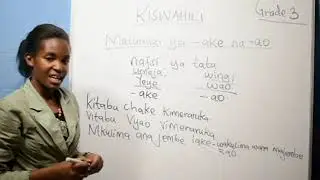 KISWAHILI
Grade 3
Matumizi ya -ake na -ao
nafsi ya tatu
umoja wingi
yeye wao
-ake -ao
kitabu chake kimeraruka
Vitabu vyao vimeraruka
Mkulima ana jembe lake - wakulima wana majembe
yao